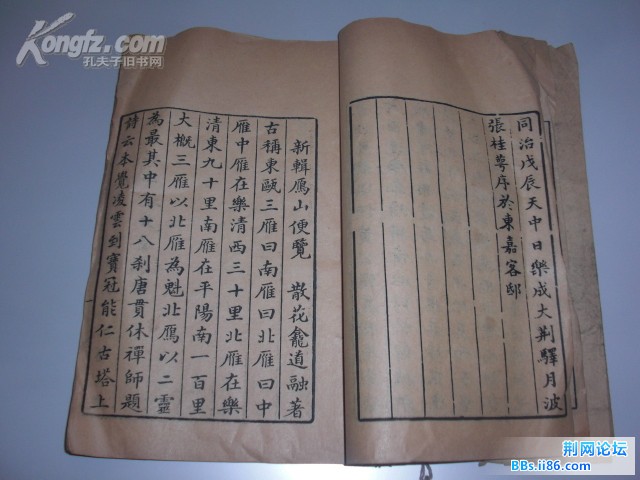 Kongfz.com
孔夫子旧书网
同治戊辰天中日樂成大荆驛月波
張桂萼序於東嘉客邸
新輯鴈山便覽　散花龕道融著
古稱東甌三雁曰南雁曰北雁曰中
雁中雁在樂清西三十里北雁在樂
清東九十里南雁在平陽南一百里
大概三雁以北雁為魁北鴈以二靈
為最其中有十八刹唐貫休禪師題
詩云本覺凌雲到寶冠能仁古塔上
荆网论坛
BBs.ii86.com